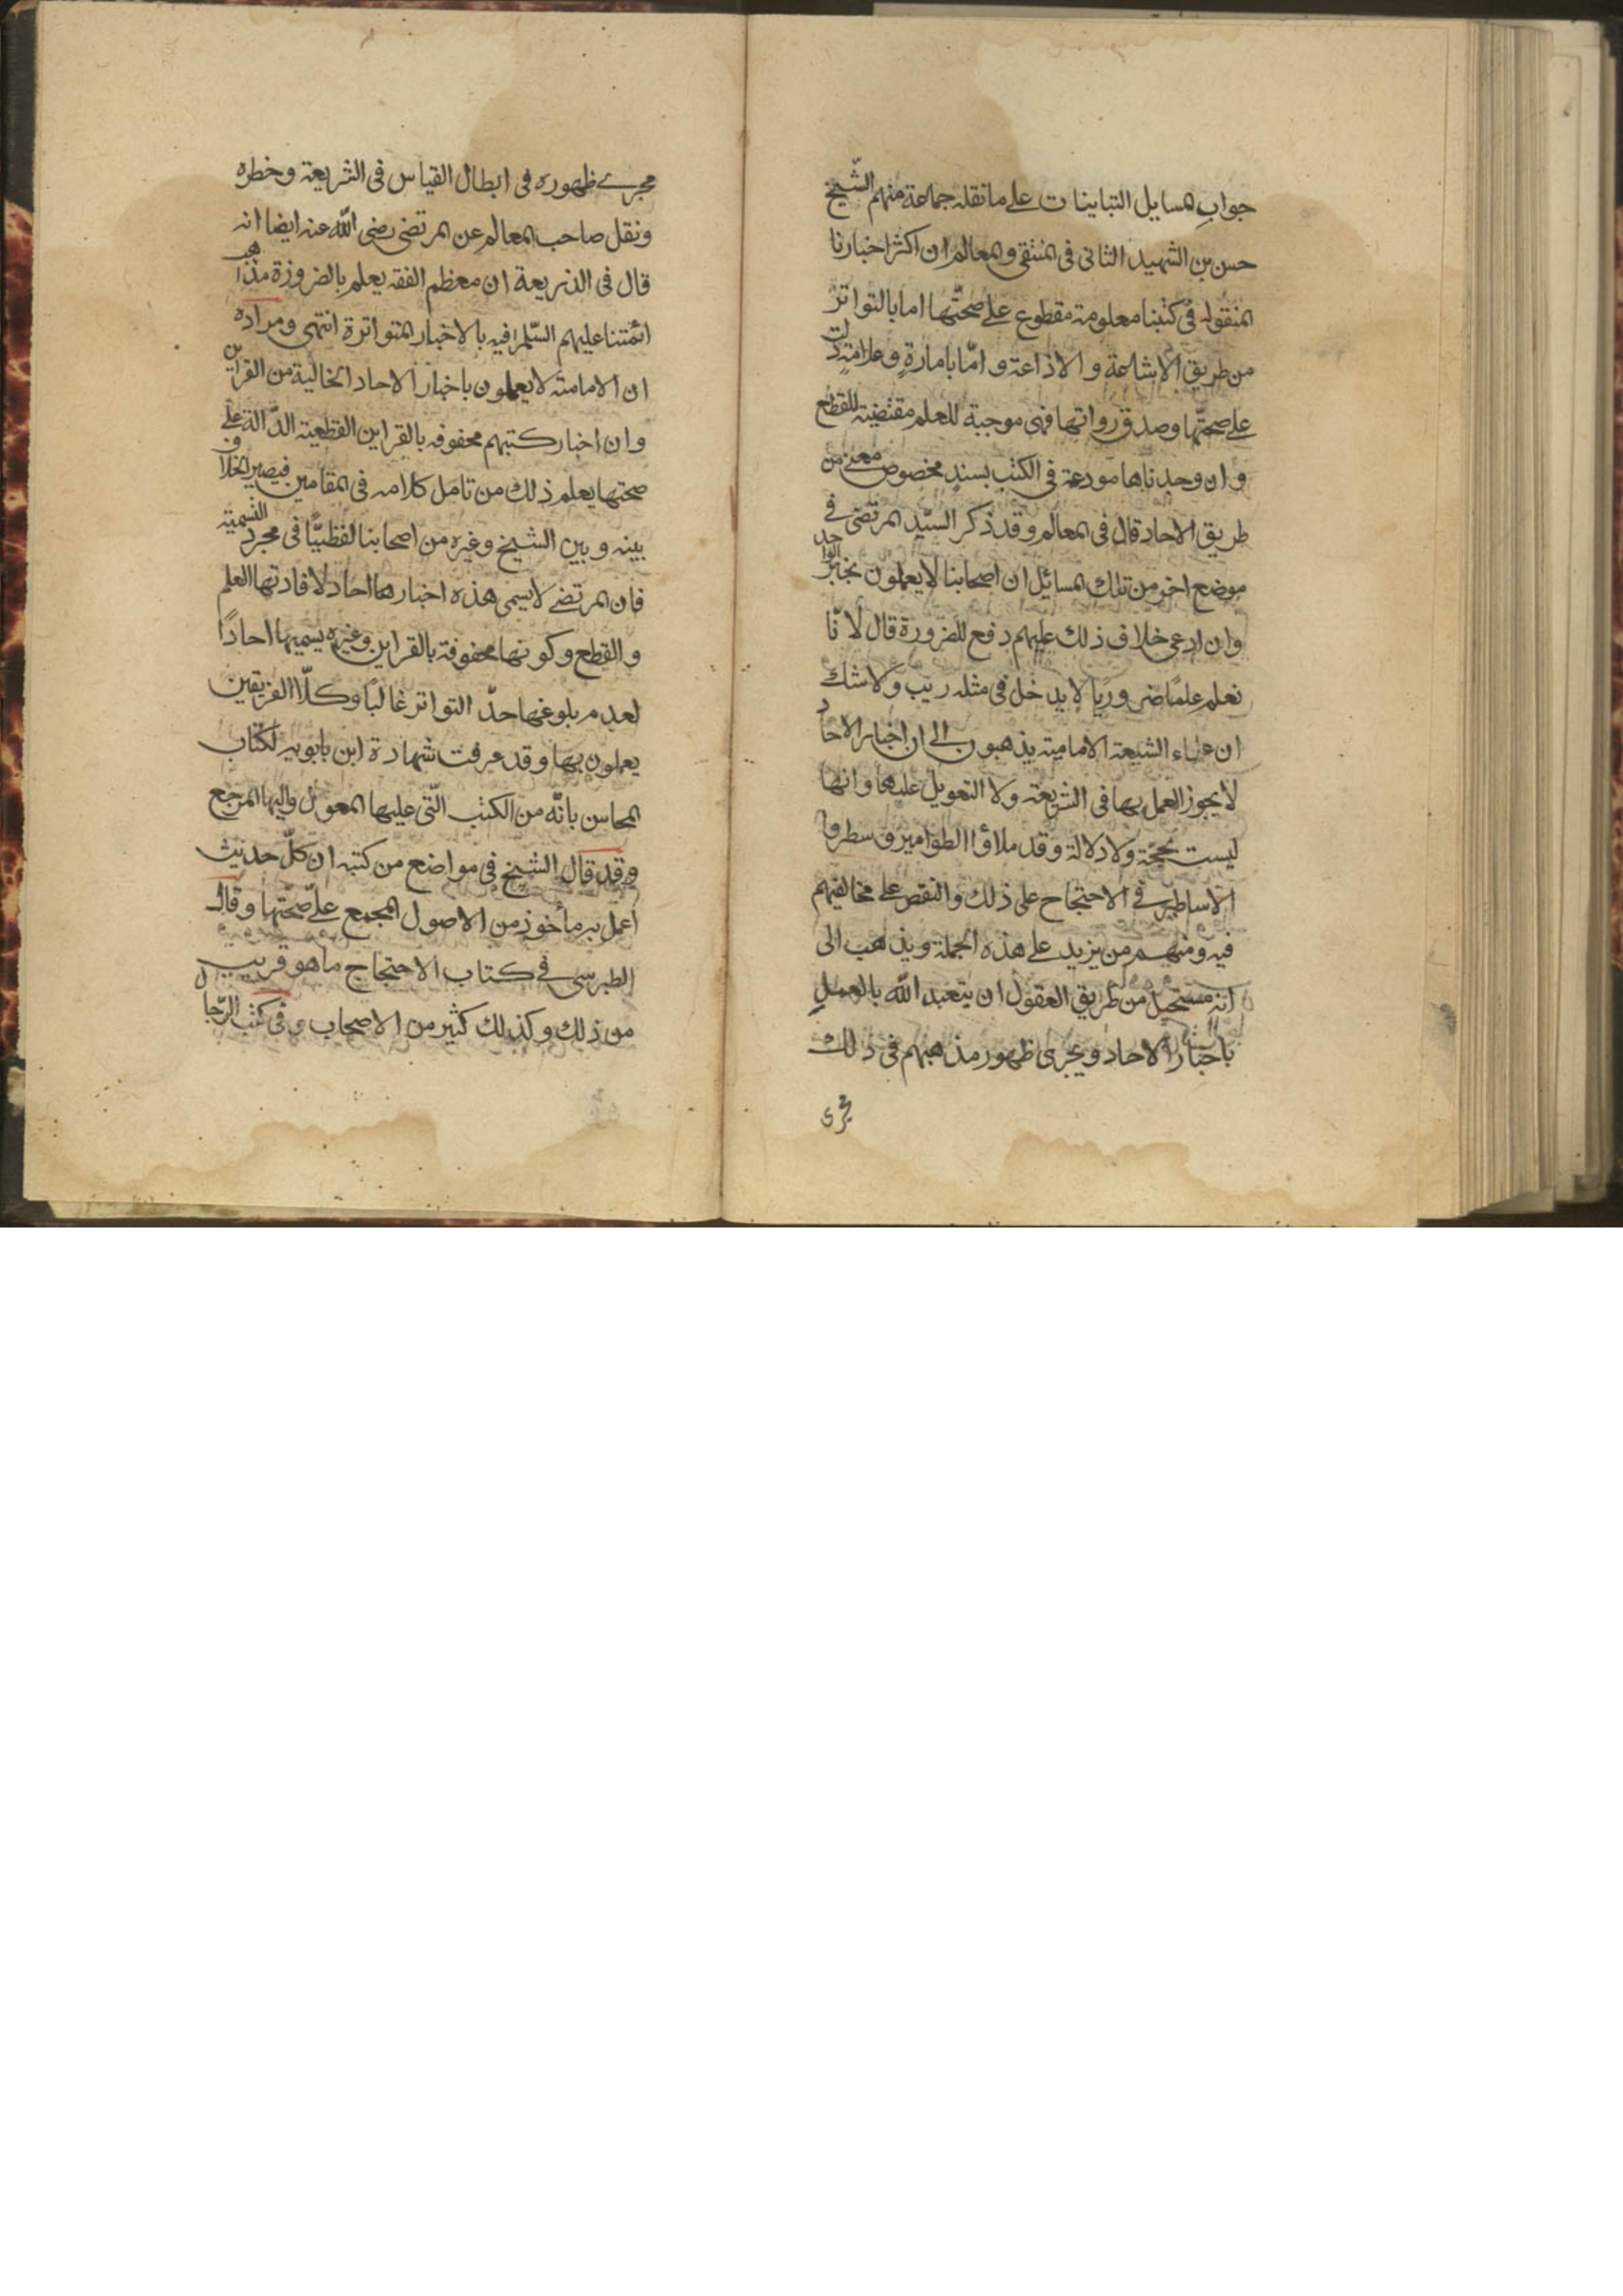 جواب المسايل التباينات على ما نقله جماعة منهم الشّيخ
حسن بن الشهيد الثانى فى المنتقى والمعالم ان اكثر اخبارنا
المنقوله فى كتبنا معلومة مقطوع على صحّتها اما بالتواتر
من طريق الاشاعة والاذاعة و امّا بامارةٍ وعلامةٍ دلت
على صحتّها وصدق رواتها فهى موجبة للعلم مقتضية للقطع
و ان وجدناها مودعة فى الكتب بسندٍ مخصوص معين من
طريق الاحاد قال فى المعالم وقد ذكر السيّد المرتضى فى
موضع اخر من تلك المسائل ان اصحابنا لا يعملون بخبر الواحد
وان ادعى خلاف ذلك عليهم دفع للضرورة قال لانّا
نعلم علمًا ضروريًا لا يدخل فى مثله ريب ولا شك
ان علماء الشيعة الامامية يذهبون الى ان اخبار الاحاد
لا يجوز العمل بها فى الشريعة ولا التعويل عليها وانها
ليست بحجّة ولا دلالة وقد ملاؤا الطوامير و سطروا
الاساطير فى الاحتجاح على ذلك والنقص على مخالفيهم
فيه ومنهم من يزيد على هذه الجملة ويذهب الى
انه مستحيل من طريق العقول ان يتعبد الله بالعمل
باخبار الاحاد ويجرى ظهور مذهبهم فى ذلك
مجرى
مجرى ظهوره فى ابطال القياس فى الشريعة وخطره
ونقل صاحب المعالم عن المرتضى رضى الله عنه ايضا انه
قال فى الذريعة ان معظم الفقه يعلم بالضرورة مذاهب
ائمتنا عليهم السّلم فيه بالاخبار المتواترة انتهى ومراده
ان الامامية لا يعملون باخبار الاحاد الخالية من القراين
و ان اخبار كتبهم محفوفه بالقراين القطعية الدّالة على
صحتها يعلم ذلك من تامل كلامه فى المقامين فيصير الخلاف
بينه و بين الشيخ وغيره من اصحابنا لفظيًّا فى مجرد التسمية
فان المرتضى لا يسمى هذه اخبارها احاد لافادتها العلم
والقطع وكونها محفوفة بالقراين وغيره يسميها احادًا
لعدم بلوغها حدّ التواتر غالبًا وكلّا الفريقين
يعملون بها وقد عرفت شهادة ابن بابويه لكتاب
المحاسن بانّه من الكتب الّتى عليها المعول واليها المرجع
وقد قال الشيخ فى مواضع من كتبه ان كلّ حديث
اعمل به مأخوذ من الاصول المجمع على صحّتها وقال
الطبرسى فى كتاب الاحتجاج ما هو قريب
من ذلك وكذلك كثير من الاصحاب و فى كتب الرّجال